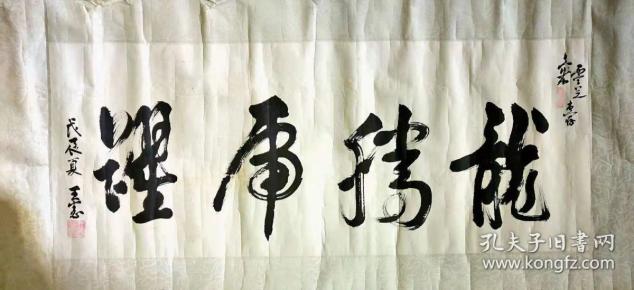 龍騰虎躍
雲芝 惠存
戊辰夏
孔夫子旧书网
www.kongfz.com